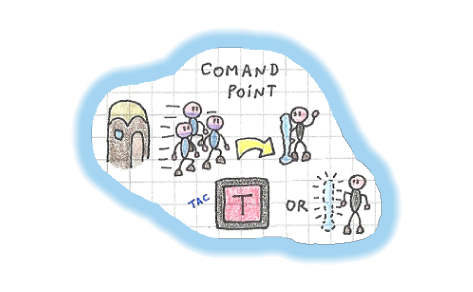 COMAND
POINT
TAC
T
OR